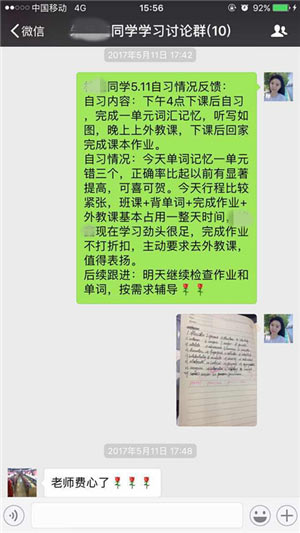 中国移动 4G 15:56 92%
微信 同学学习讨论群(10)
2017年5月11日 17:42
同学5.11自习情况反馈：
自习内容：下午4点下课后自习
，完成一单元词汇记忆，听写如
图，晚上上外教课，下课后回家
完成课本作业。
自习情况：今天单词记忆一单元
错三个，正确率比起以前有显著
提高，可喜可贺。今天行程比较
紧张，班课+背单词+完成作业+
外教课基本占用一整天时间，
现在学习劲头很足，完成作业
不打折扣，主动要求去外教课，
值得表扬。
后续跟进：明天继续检查作业和
单词，按需求辅导🌹🌹
2017年5月11日 17:48
老师费心了🌹🌹🌹